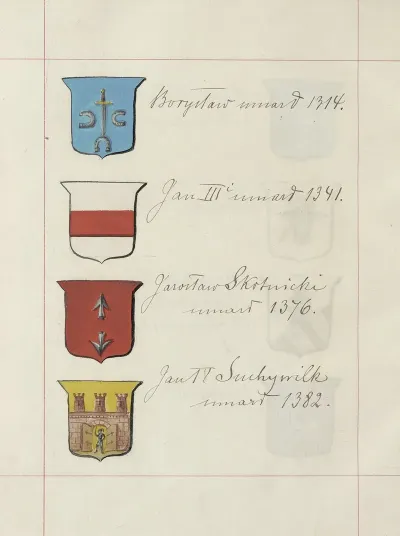 Borysław umarł 1314.
Jan III i umarł 1341.
Jarosław Skotnicki
umarł 1376.
Jan IV Suchywilk
umarł 1382.